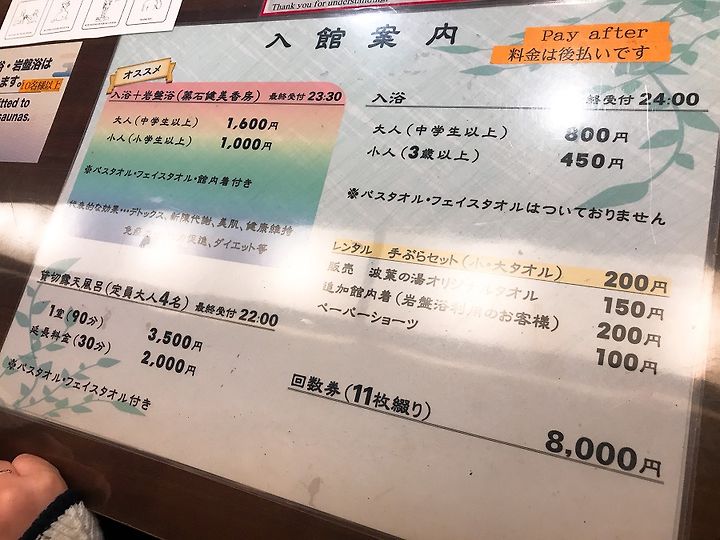 Thank you for understanding.
入館案内
Pay after
料金は後払いです
浴・岩盤浴は
ます。10名様以上
itted to
saunas.
オススメ
入浴＋岩盤浴(薬石健美香房) 最終受付23:30
大人(中学生以上) 1,600円
小人(小学生以上) 1,000円
※バスタオル・フェイスタオル・館内着付き
代表的な効果…デトックス、新陳代謝、美肌、健康維持
促進、ダイエット等
入浴 最終受付24:00
大人(中学生以上) 800円
小人(3歳以上) 450円
※バスタオル・フェイスタオルはついておりません
レンタル 手ぶらセット(小・大タオル) 200円
販売 波葉の湯オリジナルタオル 150円
追加館内着(岩盤浴利用のお客様) 200円
ペーパーショーツ 100円
貸切露天風呂(定員大人4名) 最終受付22:00
1室(90分) 3,500円
延長料金(30分) 2,000円
※バスタオル・フェイスタオル付き
回数券(11枚綴り)
8,000円